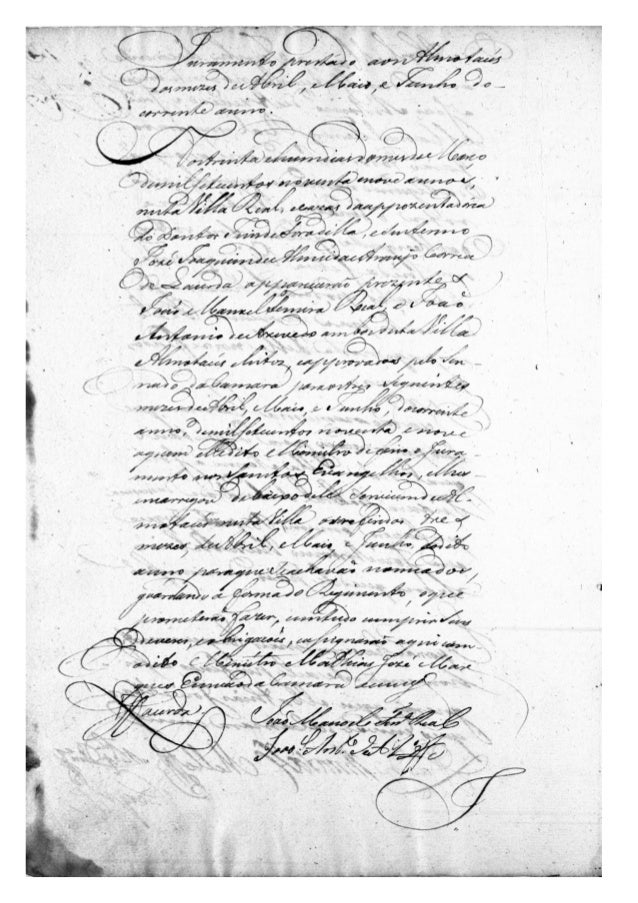 Juramento prestado aos Almotacés
dos mezes de Abril, e Maio, e Junho do
corrente anno.
Aos trinta e hum dias do mes de Março
de mil setecentos noventa nove annos,
nesta Villa Real, e cazas da appozentadoria
do Doutor Juis de Fora della, e interino
José Joaquim de Almeida e Araujo Correa
de Lacerda apparecerão prezentes
João Manoel Ferreira Real e João
Antonio de Azevedo ambos desta Villa
Almotacés eleitos, e approvados pelo Se-
nado da Camara para os tres seguintes
mezes de Abril, e Maio, e Junho, do corrente
anno, de mil setecentos noventa e nove
a quem elle dito Ministro deferio o Jura
mento dos Santos Evangelhos, e lhes
encarregou debaixo delle servirem de Al
motacés nesta Villa os referidos tres
mezes, de Abril, e Maio, e Junho, do dito
anno para que se achavão nomeados,
guardando a forma do Regimento, o que
prometerão fazer, em tudo cumprir seus
deveres, e obrigações, e assignarão aqui com
o dito Ministro e Mathias José Mar
ques Escrivão da Camara
Lacerda
João Manoel Frª Real
João Antº de Azdº